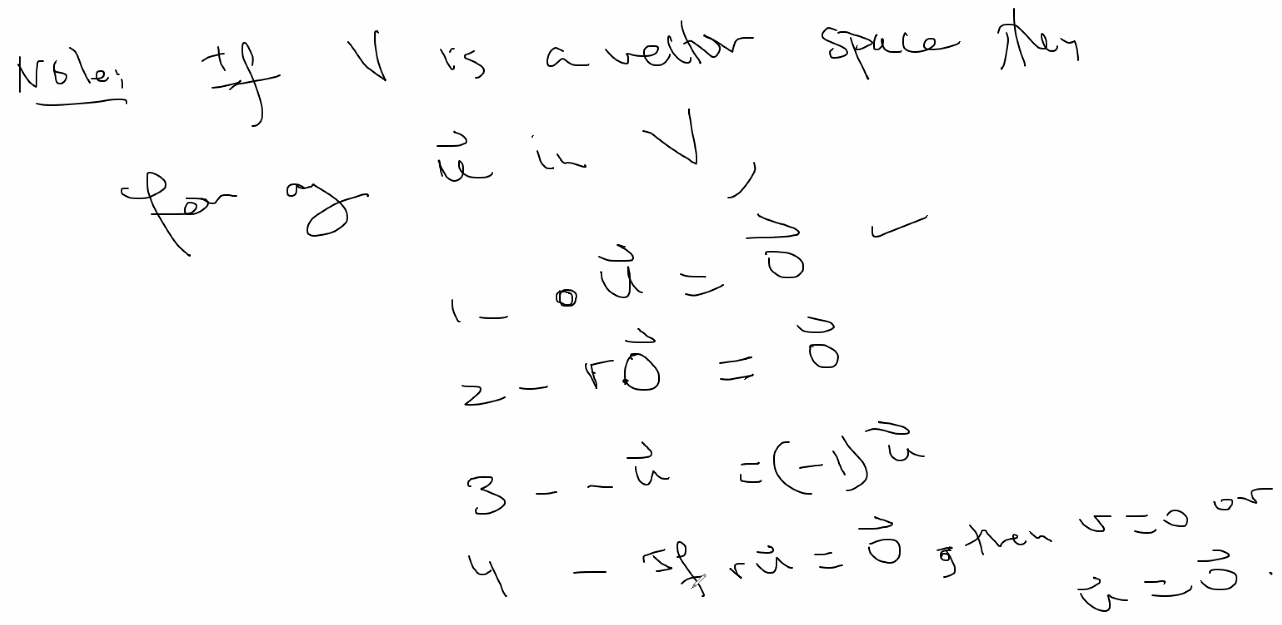 Note: If V is a vector space then
for any u⃗ in V,
1 - 0u⃗ = 0⃗ ✓
2 - r0⃗ = 0⃗
3 - -u⃗ = (-1)u⃗
4 - If ru⃗ = 0⃗, then r=0 or
u⃗ = 0⃗.